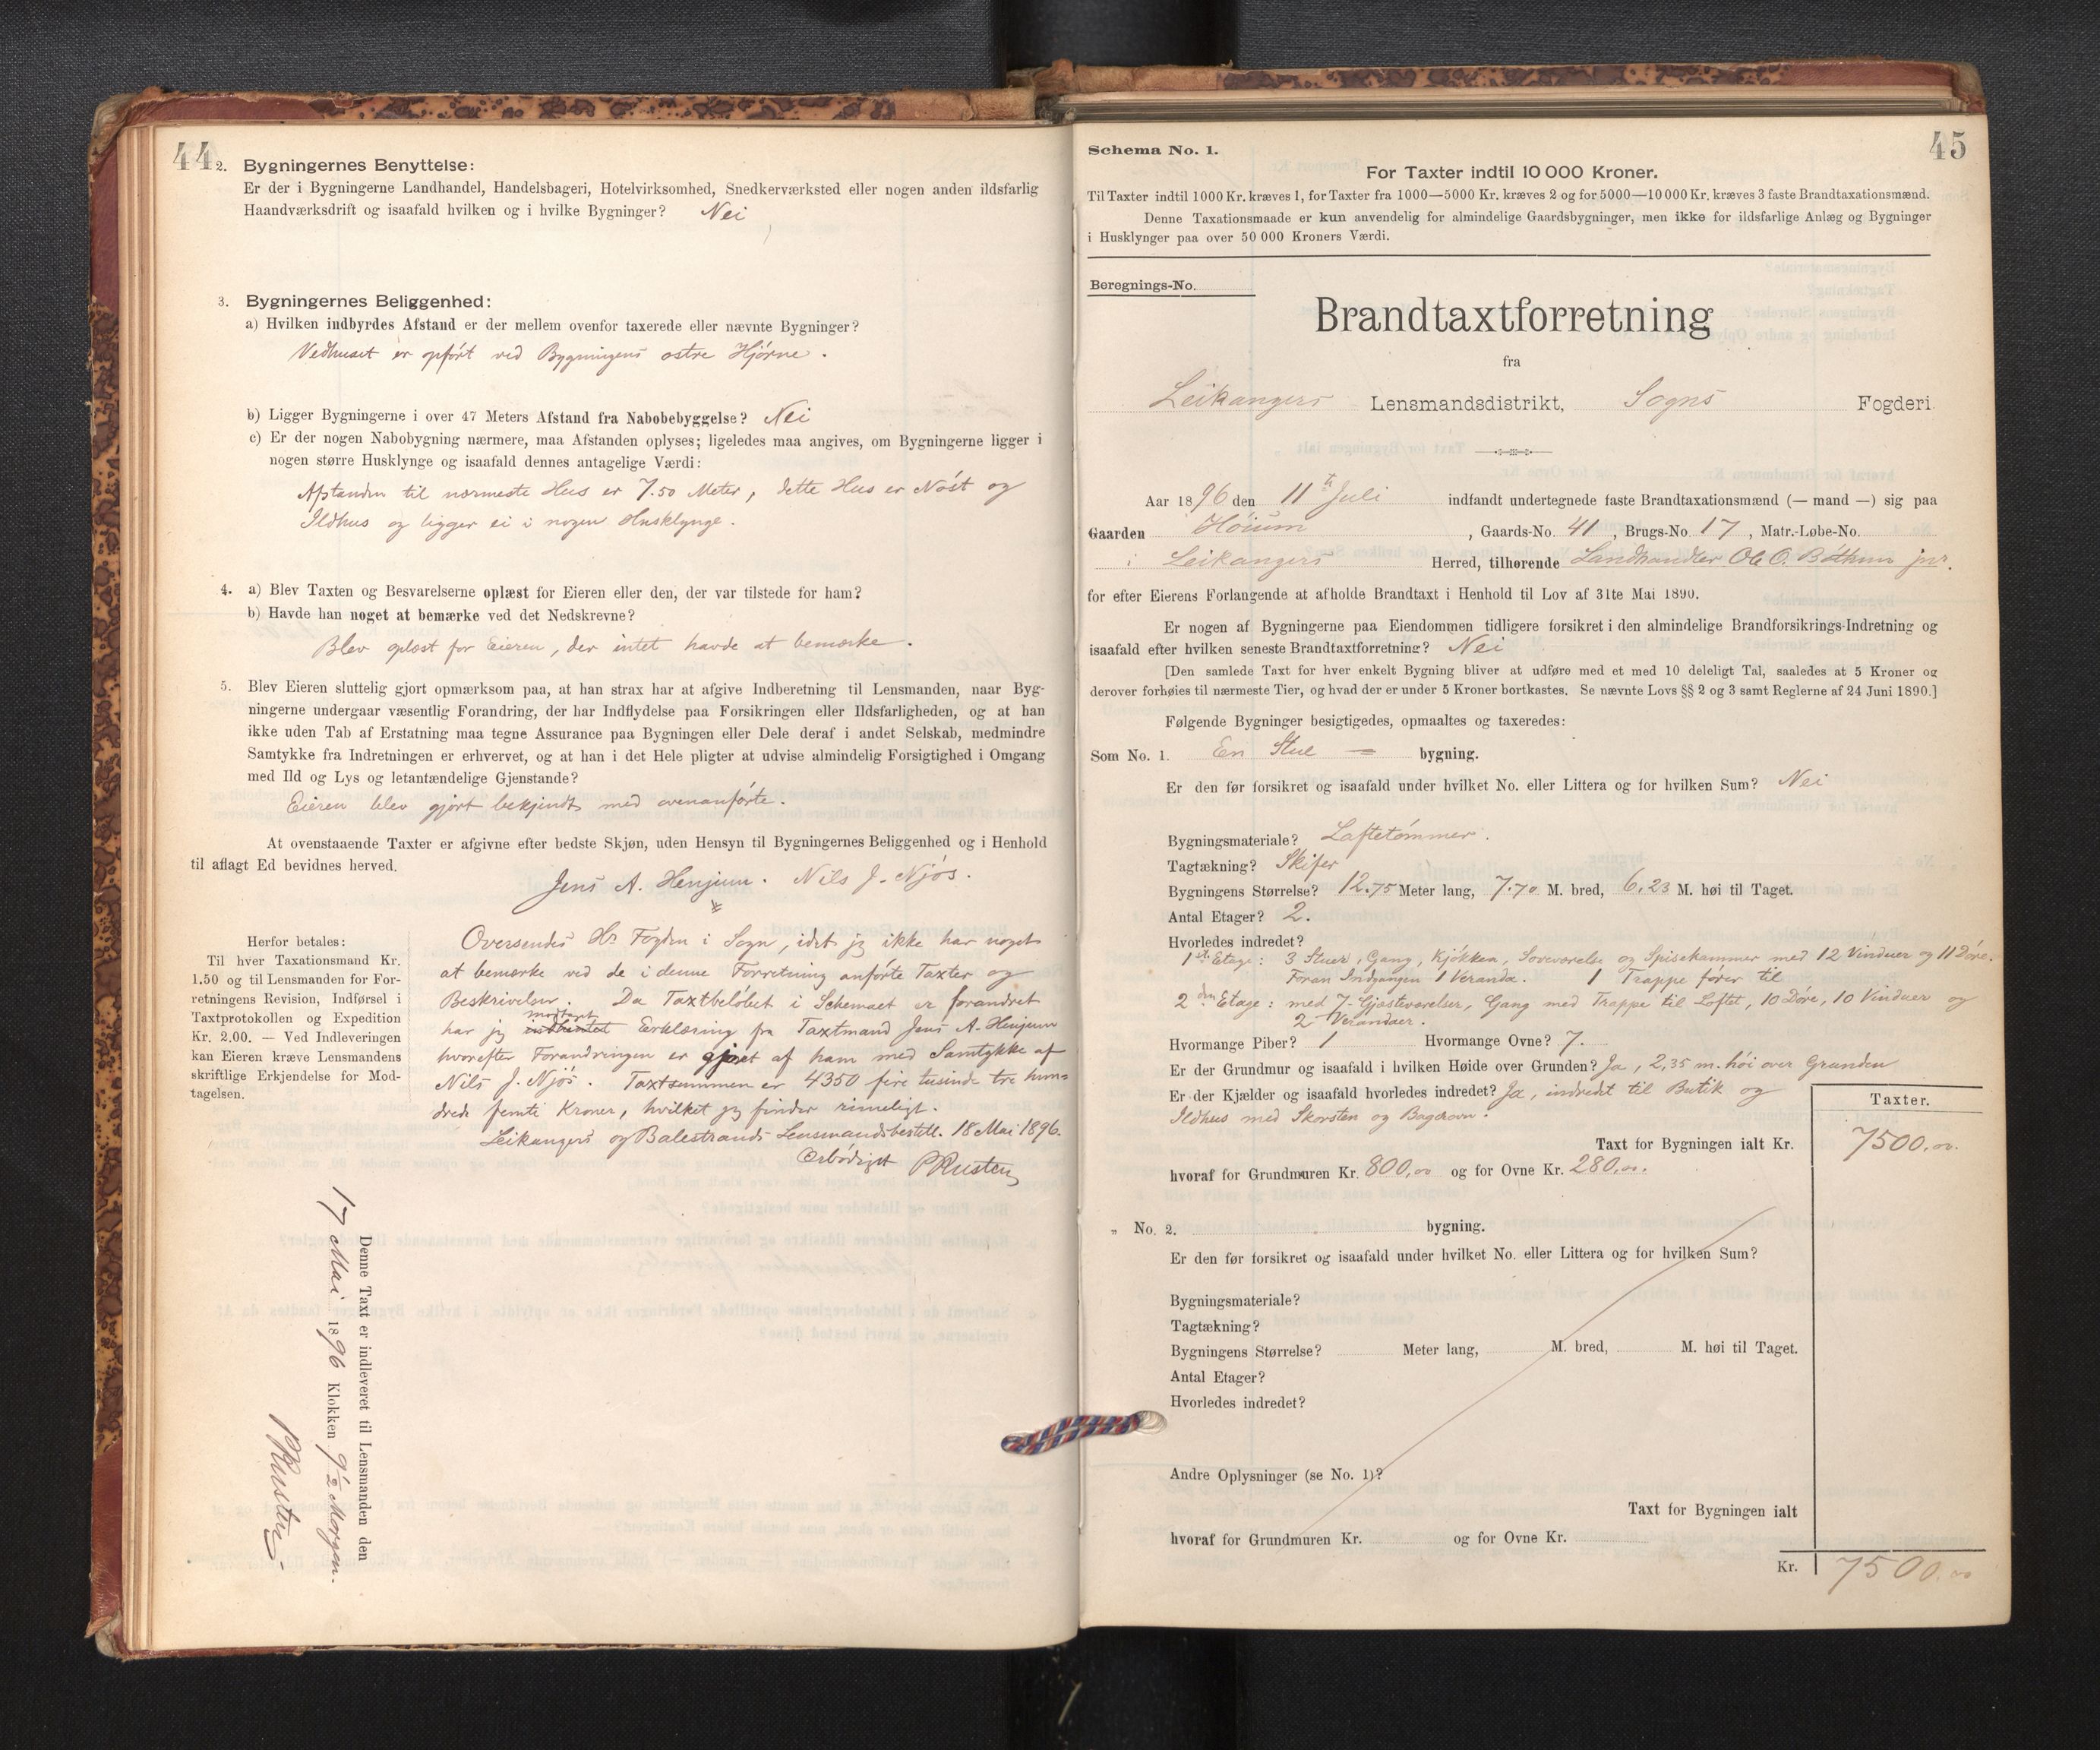 44
2. Bygningernes Benyttelse:
Er der i Bygningerne Landhandel, Handelsbageri, Hotelvirksomhed, Snedkerværksted eller nogen anden ildsfarlig
Haandværksdrift og isaafald hvilken og i hvilke Bygninger? Nei
3. Bygningernes Beliggenhed:
a) Hvilken indbyrdes Afstand er der mellem ovenfor taxerede eller nævnte Bygninger?
Vedhuset er opført ved Bygningens østre Hjørne.
b) Ligger Bygningerne i over 47 Meters Afstand fra Nabobebyggelse? Nei
c) Er der nogen Nabobygning nærmere, maa Afstanden oplyses; ligeledes maa angives, om Bygningerne ligger i
nogen større Husklynge og isaafald dennes antagelige Værdi:
Afstanden til nærmeste Hus er 7.50 Meter, dette Hus er Nøst og
Ildhus og ligger ei i nogen Husklynge.
4. a) Blev Taxten og Besvarelserne oplæst for Eieren eller den, der var tilstede for ham?
b) Havde han noget at bemærke ved det Nedskrevne?
Blev oplæst for Eieren, der intet havde at bemærke.
5. Blev Eieren sluttelig gjort opmærksom paa, at han strax har at afgive Indberetning til Lensmanden, naar Byg-
ningerne undergaar væsentlig Forandring, der har Indflydelse paa Forsikringen eller Ildsfarligheden, og at han
ikke uden Tab af Erstatning maa tegne Assurance paa Bygningen eller Dele deraf i andet Selskab, medmindre
Samtykke fra Indretningen er erhvervet, og at han i det Hele pligter at udvise almindelig Forsigtighed i Omgang
med Ild og Lys og letantændelige Gjenstande?
Eieren blev gjort bekjendt med ovenanførte.
At ovenstaaende Taxter er afgivne efter bedste Skjøn, uden Hensyn til Bygningernes Beliggenhed og i Henhold
til aflagt Ed bevidnes herved.
Jens A. Henjum. Nils J. Njøs.
Herfor betales:
Til hver Taxationsmand Kr.
1.50 og til Lensmanden for For-
retningens Revision, Indførsel i
Taxtprotokollen og Expedition
Kr. 2.00. — Ved Indleveringen
kan Eieren kræve Lensmandens
skriftlige Erkjendelse for Mod-
tagelsen.
Oversendes Hr Fogden i Sogn, idet jeg ikke har noget
at bemærke ved de i denne Forretning anførte Taxter og
Beskrivelser. Da Taxtbeløbet i Schemaet er forandret
har jeg indhentet modtaget Erklæring fra Taxtmand Jens A. Henjum
hvorefter Forandringen er gjort af ham med Samtykke af
Nils J. Njøs. Taxtsummen er 4350 fire tusinde tre hun-
drede femti Kroner, hvilket jeg finder rimeligt.
Leikangers og Balestrands Lensmandsbestill. 18 Mai 1896.
Ærbødigst P Rusten
Denne Taxt er indleveret til Lensmanden den
17 Mai 1896 Klokken 9 1/2 Morgen.
P Rusten
45
Schema No. 1.
For Taxter indtil 10 000 Kroner.
Til Taxter indtil 1000 Kr. kræves 1, for Taxter fra 1000—5000 Kr. kræves 2 og for 5000—10 000 Kr. kræves 3 faste Brandtaxationsmænd.
Denne Taxationsmaade er kun anvendelig for almindelige Gaardsbygninger, men ikke for ildsfarlige Anlæg og Bygninger
i Husklynger paa over 50 000 Kroners Værdi.
Beregnings-No.
Brandtaxtforretning
fra
Leikangers Lensmandsdistrikt, Sogns Fogderi
Aar 1896 den 11te Juli indfandt undertegnede faste Brandtaxationsmænd (— mand —) sig paa
Gaarden Høium, Gaards-No. 41, Brugs-No. 17, Matr.-Løbe-No.
i Leikangers Herred, tilhørende Landhandler Ole O. Bøthun jnr.
for efter Eierens Forlangende at afholde Brandtaxt i Henhold til Lov af 31te Mai 1890.
Er nogen af Bygningerne paa Eiendommen tidligere forsikret i den almindelige Brandforsikrings-Indretning og
isaafald efter hvilken seneste Brandtaxtforretning? Nei
[Den samlede Taxt for hver enkelt Bygning bliver at udføre med et med 10 deleligt Tal, saaledes at 5 Kroner og
derover forhøies til nærmeste Tier, og hvad der er under 5 Kroner bortkastes. Se nævnte Lovs §§ 2 og 3 samt Reglerne af 24 Juni 1890.]
Følgende Bygninger besigtigedes, opmaaltes og taxeredes:
Som No. 1. En Stue — bygning.
Er den før forsikret og isaafald under hvilket No. eller Littera og for hvilken Sum? Nei
Bygningsmateriale? Laftetømmer.
Tagtækning? Skifer
Bygningens Størrelse? 12.75 Meter lang, 7.70 M. bred, 6.23 M. høi til Taget.
Antal Etager? 2.
Hvorledes indredet?
1ste Etage: 3 Stuer, Gang, Kjøkken, Soveværelse og Spisekammer med 12 Vinduer og 11 Døre.
Foran Indgangen 1 Veranda. 1 Trappe fører til
2den Etage: med 7 Gjæsteværelser, Gang med Trappe til Loftet, 10 Døre, 10 Vinduer og
2 Verandaer.
Hvormange Piber? 1 Hvormange Ovne? 7.
Er der Grundmur og isaafald i hvilken Høide over Grunden? Ja, 2,35 m. høi over Grunden
Er der Kjælder og isaafald hvorledes indredet? Ja, indredet til Butik og
Ildhus med Skorsten og Bagerovn.
Taxter.
Taxt for Bygningen ialt Kr. 7500.00.
hvoraf for Grundmuren Kr. 800,00 og for Ovne Kr. 280,00.
" No. 2. bygning.
Er den før forsikret og isaafald under hvilket No. eller Littera og for hvilken Sum?
Bygningsmateriale?
Tagtækning?
Bygningens Størrelse? Meter lang, M. bred, M. høi til Taget.
Antal Etager?
Hvorledes indredet?
Andre Oplysninger (se No. 1)?
Taxt for Bygningen ialt
hvoraf for Grundmuren Kr. og for Ovne Kr.
Kr. 7500.00